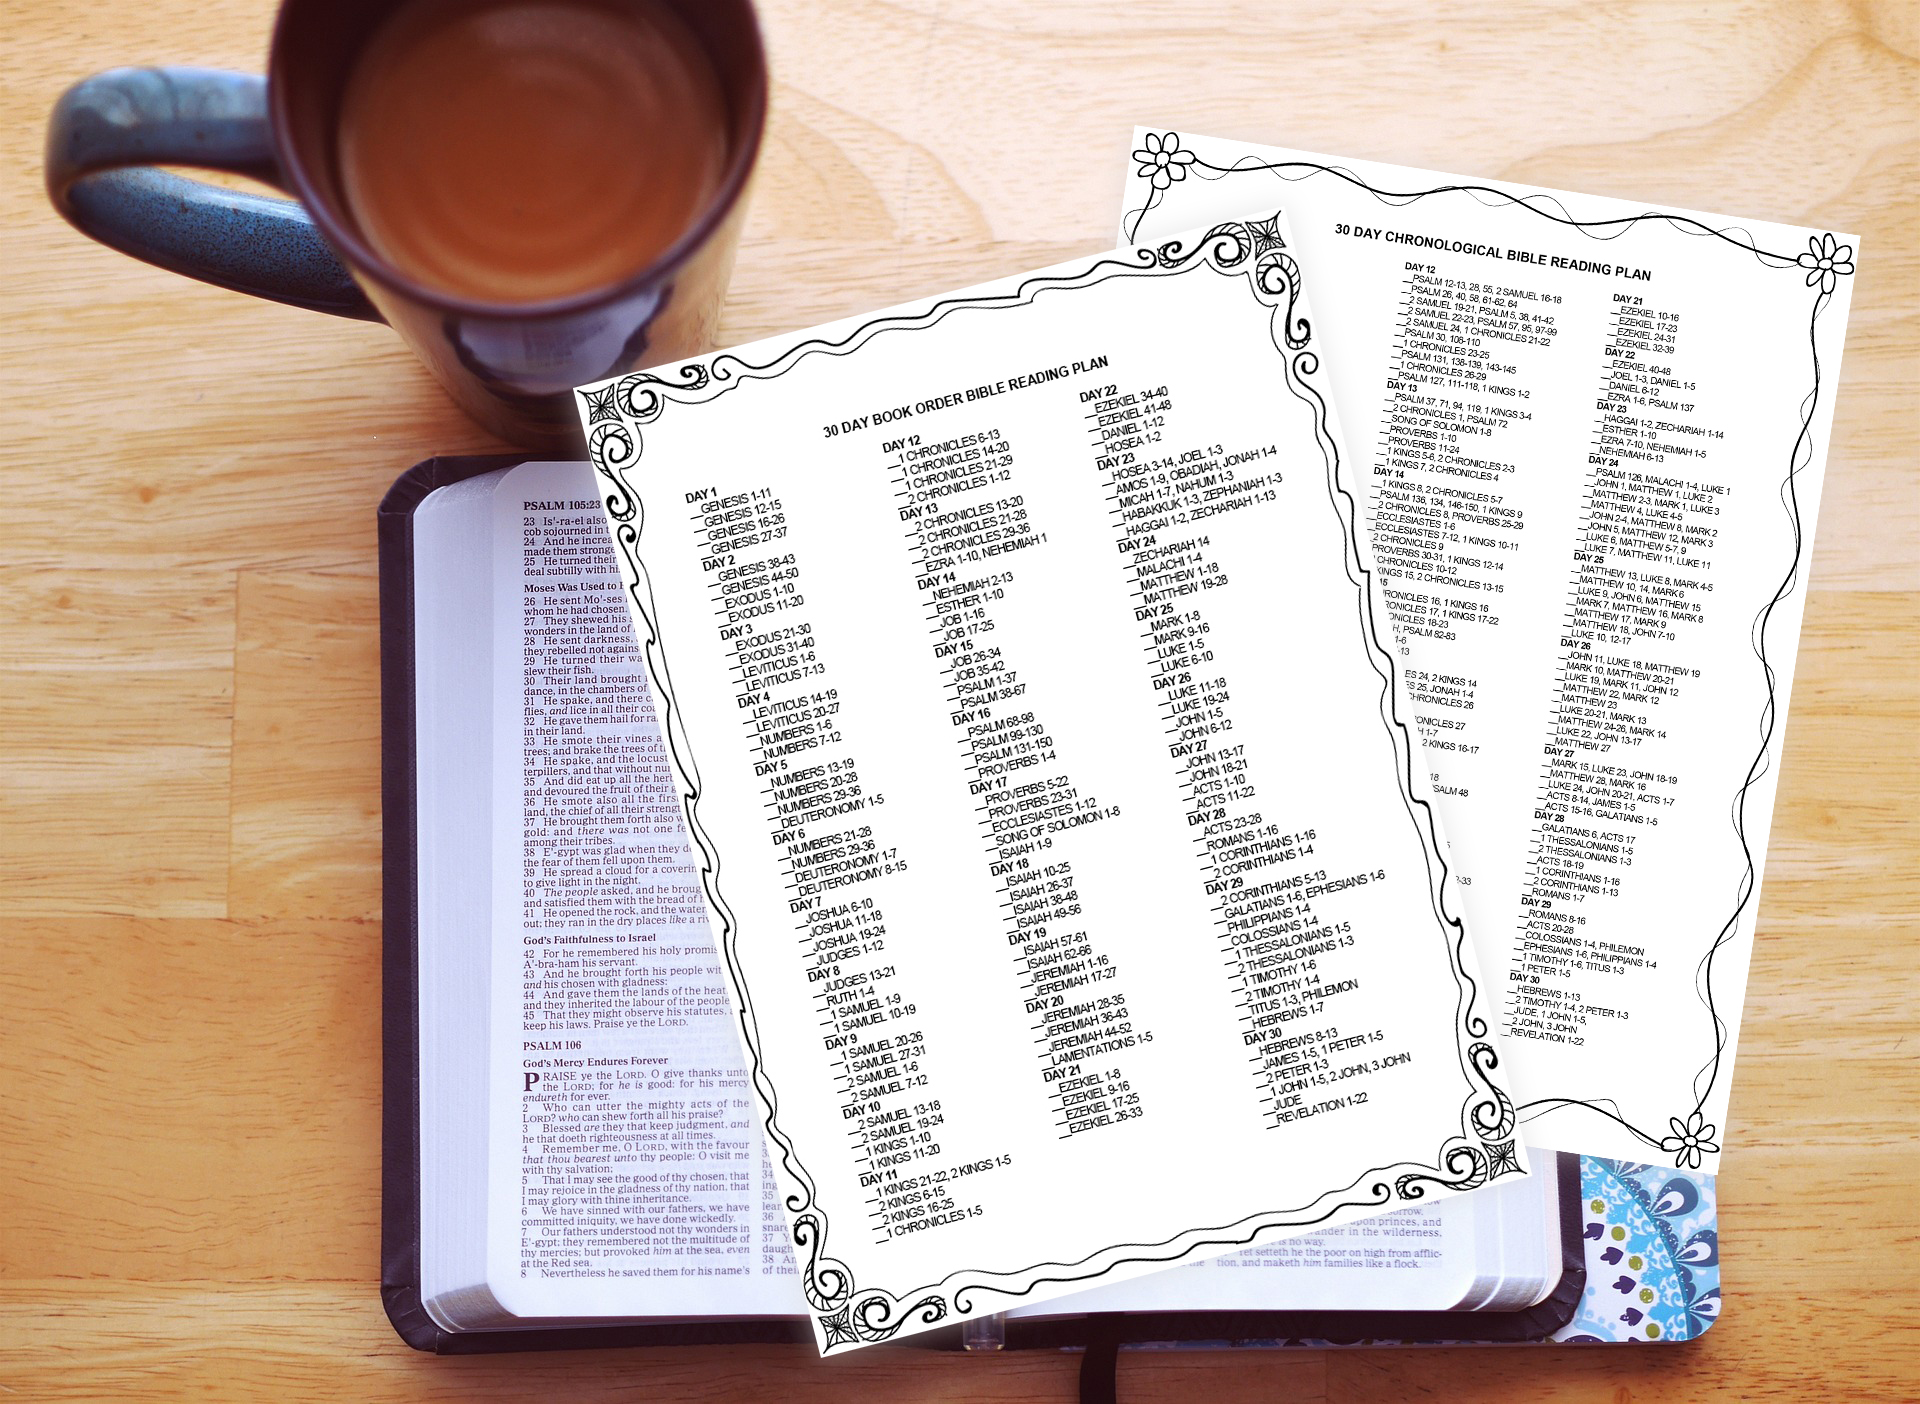 30 DAY BOOK ORDER BIBLE READING PLAN
DAY 1
__GENESIS 1-11
__GENESIS 12-15
__GENESIS 16-26
__GENESIS 27-37
DAY 2
__GENESIS 38-43
__GENESIS 44-50
__EXODUS 1-10
__EXODUS 11-20
DAY 3
__EXODUS 21-30
__EXODUS 31-40
__LEVITICUS 1-6
__LEVITICUS 7-13
DAY 4
__LEVITICUS 14-19
__LEVITICUS 20-27
__NUMBERS 1-6
__NUMBERS 7-12
DAY 5
__NUMBERS 13-19
__NUMBERS 20-28
__NUMBERS 29-36
__DEUTERONOMY 1-5
DAY 6
__NUMBERS 21-28
__NUMBERS 29-36
__DEUTERONOMY 1-7
__DEUTERONOMY 8-15
DAY 7
__JOSHUA 6-10
__JOSHUA 11-18
__JOSHUA 19-24
__JUDGES 1-12
DAY 8
__JUDGES 13-21
__RUTH 1-4
__1 SAMUEL 1-9
__1 SAMUEL 10-19
DAY 9
__1 SAMUEL 20-26
__1 SAMUEL 27-31
__2 SAMUEL 1-6
__2 SAMUEL 7-12
DAY 10
__2 SAMUEL 13-18
__2 SAMUEL 19-24
__1 KINGS 1-10
__1 KINGS 11-20
DAY 11
__1 KINGS 21-22, 2 KINGS 1-5
__2 KINGS 6-15
__2 KINGS 16-25
__1 CHRONICLES 1-5
DAY 12
__1 CHRONICLES 6-13
__1 CHRONICLES 14-20
__1 CHRONICLES 21-29
__2 CHRONICLES 1-12
DAY 13
__2 CHRONICLES 13-20
__2 CHRONICLES 21-28
__2 CHRONICLES 29-36
__EZRA 1-10, NEHEMIAH 1
DAY 14
__NEHEMIAH 2-13
__ESTHER 1-10
__JOB 1-16
__JOB 17-25
DAY 15
__JOB 26-34
__JOB 35-42
__PSALM 1-37
__PSALM 38-67
DAY 16
__PSALM 68-98
__PSALM 99-130
__PSALM 131-150
__PROVERBS 1-4
DAY 17
__PROVERBS 5-22
__PROVERBS 23-31
__ECCLESIASTES 1-12
__SONG OF SOLOMON 1-8
__ISAIAH 1-9
DAY 18
__ISAIAH 10-25
__ISAIAH 26-37
__ISAIAH 38-48
__ISAIAH 49-56
DAY 19
__ISAIAH 57-61
__ISAIAH 62-66
__JEREMIAH 1-16
__JEREMIAH 17-27
DAY 20
__JEREMIAH 28-35
__JEREMIAH 36-43
__JEREMIAH 44-52
__LAMENTATIONS 1-5
DAY 21
__EZEKIEL 1-8
__EZEKIEL 9-16
__EZEKIEL 17-25
__EZEKIEL 26-33
DAY 22
__EZEKIEL 34-40
__EZEKIEL 41-48
__DANIEL 1-12
__HOSEA 1-2
DAY 23
__HOSEA 3-14, JOEL 1-3
__AMOS 1-9, OBADIAH, JONAH 1-4
__MICAH 1-7, NAHUM 1-3
__HABAKKUK 1-3, ZEPHANIAH 1-3
__HAGGAI 1-2, ZECHARIAH 1-13
DAY 24
__ZECHARIAH 14
__MALACHI 1-4
__MATTHEW 1-18
__MATTHEW 19-28
DAY 25
__MARK 1-8
__MARK 9-16
__LUKE 1-5
__LUKE 6-10
DAY 26
__LUKE 11-18
__LUKE 19-24
__JOHN 1-5
__JOHN 6-12
DAY 27
__JOHN 13-17
__JOHN 18-21
__ACTS 1-10
__ACTS 11-22
DAY 28
__ACTS 23-28
__ROMANS 1-16
__1 CORINTHIANS 1-16
__2 CORINTHIANS 1-4
DAY 29
__2 CORINTHIANS 5-13
__GALATIANS 1-6, EPHESIANS 1-6
__PHILIPPIANS 1-4
__COLOSSIANS 1-4
__1 THESSALONIANS 1-5
__2 THESSALONIANS 1-3
__1 TIMOTHY 1-6
__2 TIMOTHY 1-4
__TITUS 1-3, PHILEMON
__HEBREWS 1-7
DAY 30
__HEBREWS 8-13
__JAMES 1-5, 1 PETER 1-5
__2 PETER 1-3
__1 JOHN 1-5, 2 JOHN, 3 JOHN
__JUDE
__REVELATION 1-22
30 DAY CHRONOLOGICAL BIBLE READING PLAN
DAY 12
__PSALM 12-13, 28, 55, 2 SAMUEL 16-18
__PSALM 26, 40, 58, 61-62, 64
__2 SAMUEL 19-21, PSALM 5, 38, 41-42
__2 SAMUEL 22-23, PSALM 57, 95, 97-99
__2 SAMUEL 24, 1 CHRONICLES 21-22
__PSALM 30, 108-110
__1 CHRONICLES 23-25
__PSALM 131, 138-139, 143-145
__1 CHRONICLES 26-29
__PSALM 127, 111-118, 1 KINGS 1-2
DAY 13
__PSALM 37, 71, 94, 119, 1 KINGS 3-4
__2 CHRONICLES 1, PSALM 72
__SONG OF SOLOMON 1-8
__PROVERBS 1-10
__PROVERBS 11-24
__1 KINGS 5-6, 2 CHRONICLES 2-3
__1 KINGS 7, 2 CHRONICLES 4
DAY 14
__1 KINGS 8, 2 CHRONICLES 5-7
__PSALM 136, 134, 146-150, 1 KINGS 9
__2 CHRONICLES 8, PROVERBS 25-29
__ECCLESIASTES 1-6
__ECCLESIASTES 7-12, 1 KINGS 10-11
_2 CHRONICLES 9
PROVERBS 30-31, 1 KINGS 12-14
CHRONICLES 10-12
KINGS 15, 2 CHRONICLES 13-15
15
RONICLES 16, 1 KINGS 16
RONICLES 17, 1 KINGS 17-22
ICLES 18-23
H, PSALM 82-83
1-6
-13
ES 24, 2 KINGS 14
ES 25, JONAH 1-4
CHRONICLES 26
ONICLES 27
H 1-7
2 KINGS 16-17
18
SALM 48
2-33
DAY 21
__EZEKIEL 10-16
__EZEKIEL 17-23
__EZEKIEL 24-31
__EZEKIEL 32-39
DAY 22
__EZEKIEL 40-48
__JOEL 1-3, DANIEL 1-5
__DANIEL 6-12
__EZRA 1-6, PSALM 137
DAY 23
__HAGGAI 1-2, ZECHARIAH 1-14
__ESTHER 1-10
__EZRA 7-10, NEHEMIAH 1-5
__NEHEMIAH 6-13
DAY 24
__PSALM 126, MALACHI 1-4, LUKE 1
__JOHN 1, MATTHEW 1, LUKE 2
__MATTHEW 2-3, MARK 1, LUKE 3
__MATTHEW 4, LUKE 4-5
__JOHN 2-4, MATTHEW 8, MARK 2
__JOHN 5, MATTHEW 12, MARK 3
__LUKE 6, MATTHEW 5-7, 9
__LUKE 7, MATTHEW 11, LUKE 11
DAY 25
__MATTHEW 13, LUKE 8, MARK 4-5
__MATTHEW 10, 14, MARK 6
__LUKE 9, JOHN 6, MATTHEW 15
__MARK 7, MATTHEW 16, MARK 8
__MATTHEW 17, MARK 9
__MATTHEW 18, JOHN 7-10
__LUKE 10, 12-17
DAY 26
__JOHN 11, LUKE 18, MATTHEW 19
__MARK 10, MATTHEW 20-21
__LUKE 19, MARK 11, JOHN 12
__MATTHEW 22, MARK 12
__MATTHEW 23
__LUKE 20-21, MARK 13
__MATTHEW 24-26, MARK 14
__LUKE 22, JOHN 13-17
__MATTHEW 27
DAY 27
__MARK 15, LUKE 23, JOHN 18-19
__MATTHEW 28, MARK 16
__LUKE 24, JOHN 20-21, ACTS 1-7
__ACTS 8-14, JAMES 1-5
__ACTS 15-16, GALATIANS 1-5
DAY 28
__GALATIANS 6, ACTS 17
__1 THESSALONIANS 1-5
__2 THESSALONIANS 1-3
__ACTS 18-19
__1 CORINTHIANS 1-16
__2 CORINTHIANS 1-13
__ROMANS 1-7
DAY 29
__ROMANS 8-16
__ACTS 20-28
__COLOSSIANS 1-4, PHILEMON
__EPHESIANS 1-6, PHILIPPIANS 1-4
__1 TIMOTHY 1-6, TITUS 1-3
__1 PETER 1-5
DAY 30
__HEBREWS 1-13
__2 TIMOTHY 1-4, 2 PETER 1-3
__JUDE, 1 JOHN 1-5,
__2 JOHN, 3 JOHN
__REVELATION 1-22
PSALM 105:23
23 Is'-ra-el also
cob sojourned in t
24 And he increa
made them stronge
25 He turned their
deal subtilly with hi
Moses Was Used to
26 He sent Mo'-ses
whom he had chosen.
27 They shewed his s
wonders in the land of
28 He sent darkness,
they rebelled not agains
29 He turned their wa
slew their fish.
30 Their land brought
dance, in the chambers of
31 He spake, and there c
flies, and lice in all their coa
32 He gave them hail for ra
in their land.
33 He smote their vines a
trees; and brake the trees of t
34 He spake, and the locust
terpillers, and that without nu
35 And did eat up all the herb
and devoured the fruit of their g
36 He smote also all the firs
land, the chief of all their strengt
37 He brought them forth also w
gold: and there was not one fe
among their tribes.
38 E'-gypt was glad when they de
the fear of them fell upon them.
39 He spread a cloud for a coverin
to give light in the night.
40 The people asked, and he broug
and satisfied them with the bread of h
41 He opened the rock, and the water
out; they ran in the dry places like a riv
God's Faithfulness to Israel
42 For he remembered his holy promis
A'-bra-ham his servant.
43 And he brought forth his people wit
and his chosen with gladness:
44 And gave them the lands of the heat
and they inherited the labour of the people
45 That they might observe his statutes, a
keep his laws. Praise ye the LORD.
PSALM 106
God's Mercy Endures Forever
PRAISE ye the LORD. O give thanks unto
the LORD; for he is good: for his mercy
endureth for ever.
2 Who can utter the mighty acts of the
LORD? who can shew forth all his praise?
3 Blessed are they that keep judgment, and
he that doeth righteousness at all times.
4 Remember me, O LORD, with the favour
that thou bearest unto thy people: O visit me
with thy salvation;
5 That I may see the good of thy chosen, that
I may rejoice in the gladness of thy nation, that
I may glory with thine inheritance.
6 We have sinned with our fathers, we have
committed iniquity, we have done wickedly.
7 Our fathers understood not thy wonders in
E'-gypt; they remembered not the multitude of
thy mercies; but provoked him at the sea, even
at the Red sea.
8 Nevertheless he saved them for his name's
34
35
lear
36
snare
37
daugh
38 An
of thei
orrow.
upon princes, and
ander in the wilderness,
is no way.
Yet setteth he the poor on high from afflic-
tion, and maketh him families like a flock.